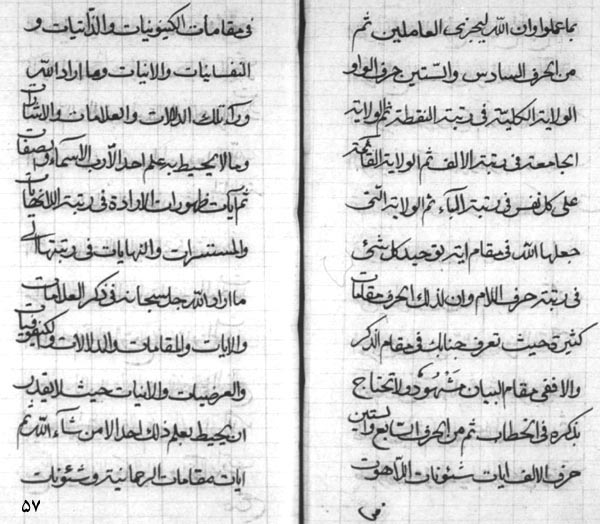 بما عملوا وان الله ليجزي العاملين ثم
من الحرف السادس والستين حرف الواو
الولاية الكلية في رتبة النقطة ثم الولاية
الجامعة في رتبة الالف ثم الولاية القائمة
على كل نفس في رتبة الباء ثم الولاية التي
جعلها الله في مقام اية توحيد كل شئ
في رتبة حرف اللام وان لذلك الحرف مقامات
كثيرة حيث تعرف جنابك في مقام الذكر
والا ففي مقام البيان مشهود ولا تحتاج
بذكره في الخطاب ثم من الحرف السابع والستين
حرف الالف ايات شئونات اللاهوت
في
في مقامات الكينونيات والذاتيات و
النفسانيات والانيات وما اراد الله
وراء تلك الدلالات والعلامات والاشارات
وما لا يحيط به علم احد الا رب الاسماء والصفات
ثم ايات ظهورات الارادة في رتبة اللانهايات
والمستسرات والنهايات في رتبتها الى
ما اراد الله جل سبحانه في ذكر العلامات
والايات والمقامات والدلالات والكيفوفيات
والعرضيات والانيات حيث لا يقدر
ان يحيط بعلم ذلك احد الا من شاء الله ثم
ايات مقامات الرحمانية وشئونات
۵۷